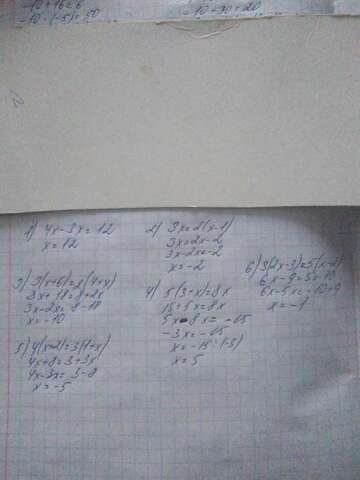 -10+16=6
-10·(-5)=50
-10+30=20
1) 4x-3x=12
x=12
2) 3x=2(x-1)
3x=2x-2
3x-2x=-2
x=-2
3) 3(x+6)=2(4+x)
3x+18=8+2x
3x-2x=8-18
x=-10
4) 5(3+x)=8x
15+5x=8x
5x-8x=-15
-3x=-15
x=-15:(-3)
x=5
5) 4(x+2)=3(1+x)
4x+8=3+3x
4x-3x=3-8
x=-5
6) 3(2x-3)=5(x-2)
6x-9=5x-10
6x-5x=-10+9
x=-1